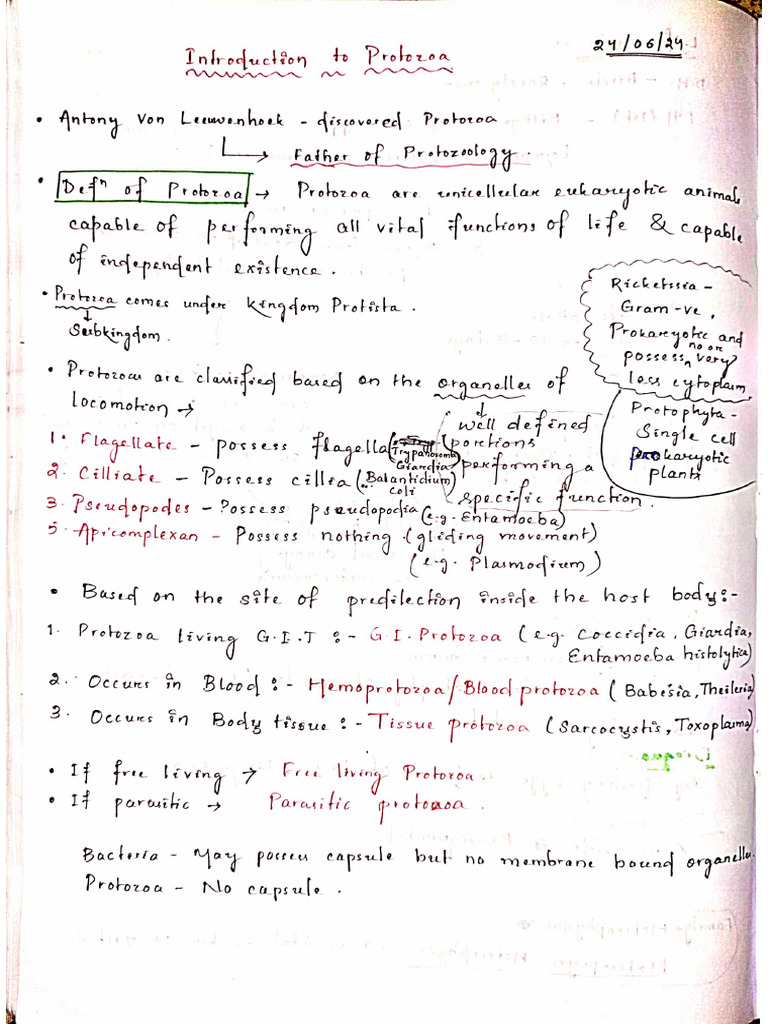 24/06/24
Introduction to Protozoa
• Antony Von Leeuwenhoek - discovered Protozoa
↳ Father of Protozoology.
• Defⁿ of Protozoa → Protozoa are unicellular eukaryotic animals
capable of performing all vital functions of life & capable
of independent existence.
• Protozoa comes under kingdom Protista.
↓
Subkingdom.
Ricketssia -
Gram -ve,
Prokaryotic and
possess no or very
less cytoplasm
• Protozoas are classified based on the organelles of
locomotion →
↓
well defined
portions
performing a
specific function.
Protophyta -
Single cell
prokaryotic
plants
1. Flagellate - possess flagella (Trypanosoma
Giardia)
2. Cilliate - Possess cillia (Balantidium
coli)
3. Pseudopodes - Possess pseudopodia (e.g. Entamoeba)
5. Apicomplexan - Possess nothing (gliding movement)
(e.g. Plasmodium)
• Based on the site of predilection inside the host body:-
1. Protozoa living G.I.T :- G.I. Protozoa (e.g. Coccidia, Giardia,
Entamoeba histolytica)
2. Occurs in Blood :- Hemoprotozoa/Blood protozoa (Babesia, Theileria)
3. Occurs in Body tissue :- Tissue protozoa (Sarcocystis, Toxoplasma)
• If free living → Free living Protozoa.
• If parasitic → Parasitic protozoa.
Bacteria - May possess capsule but no membrane bound organelles.
Protozoa - No capsule.